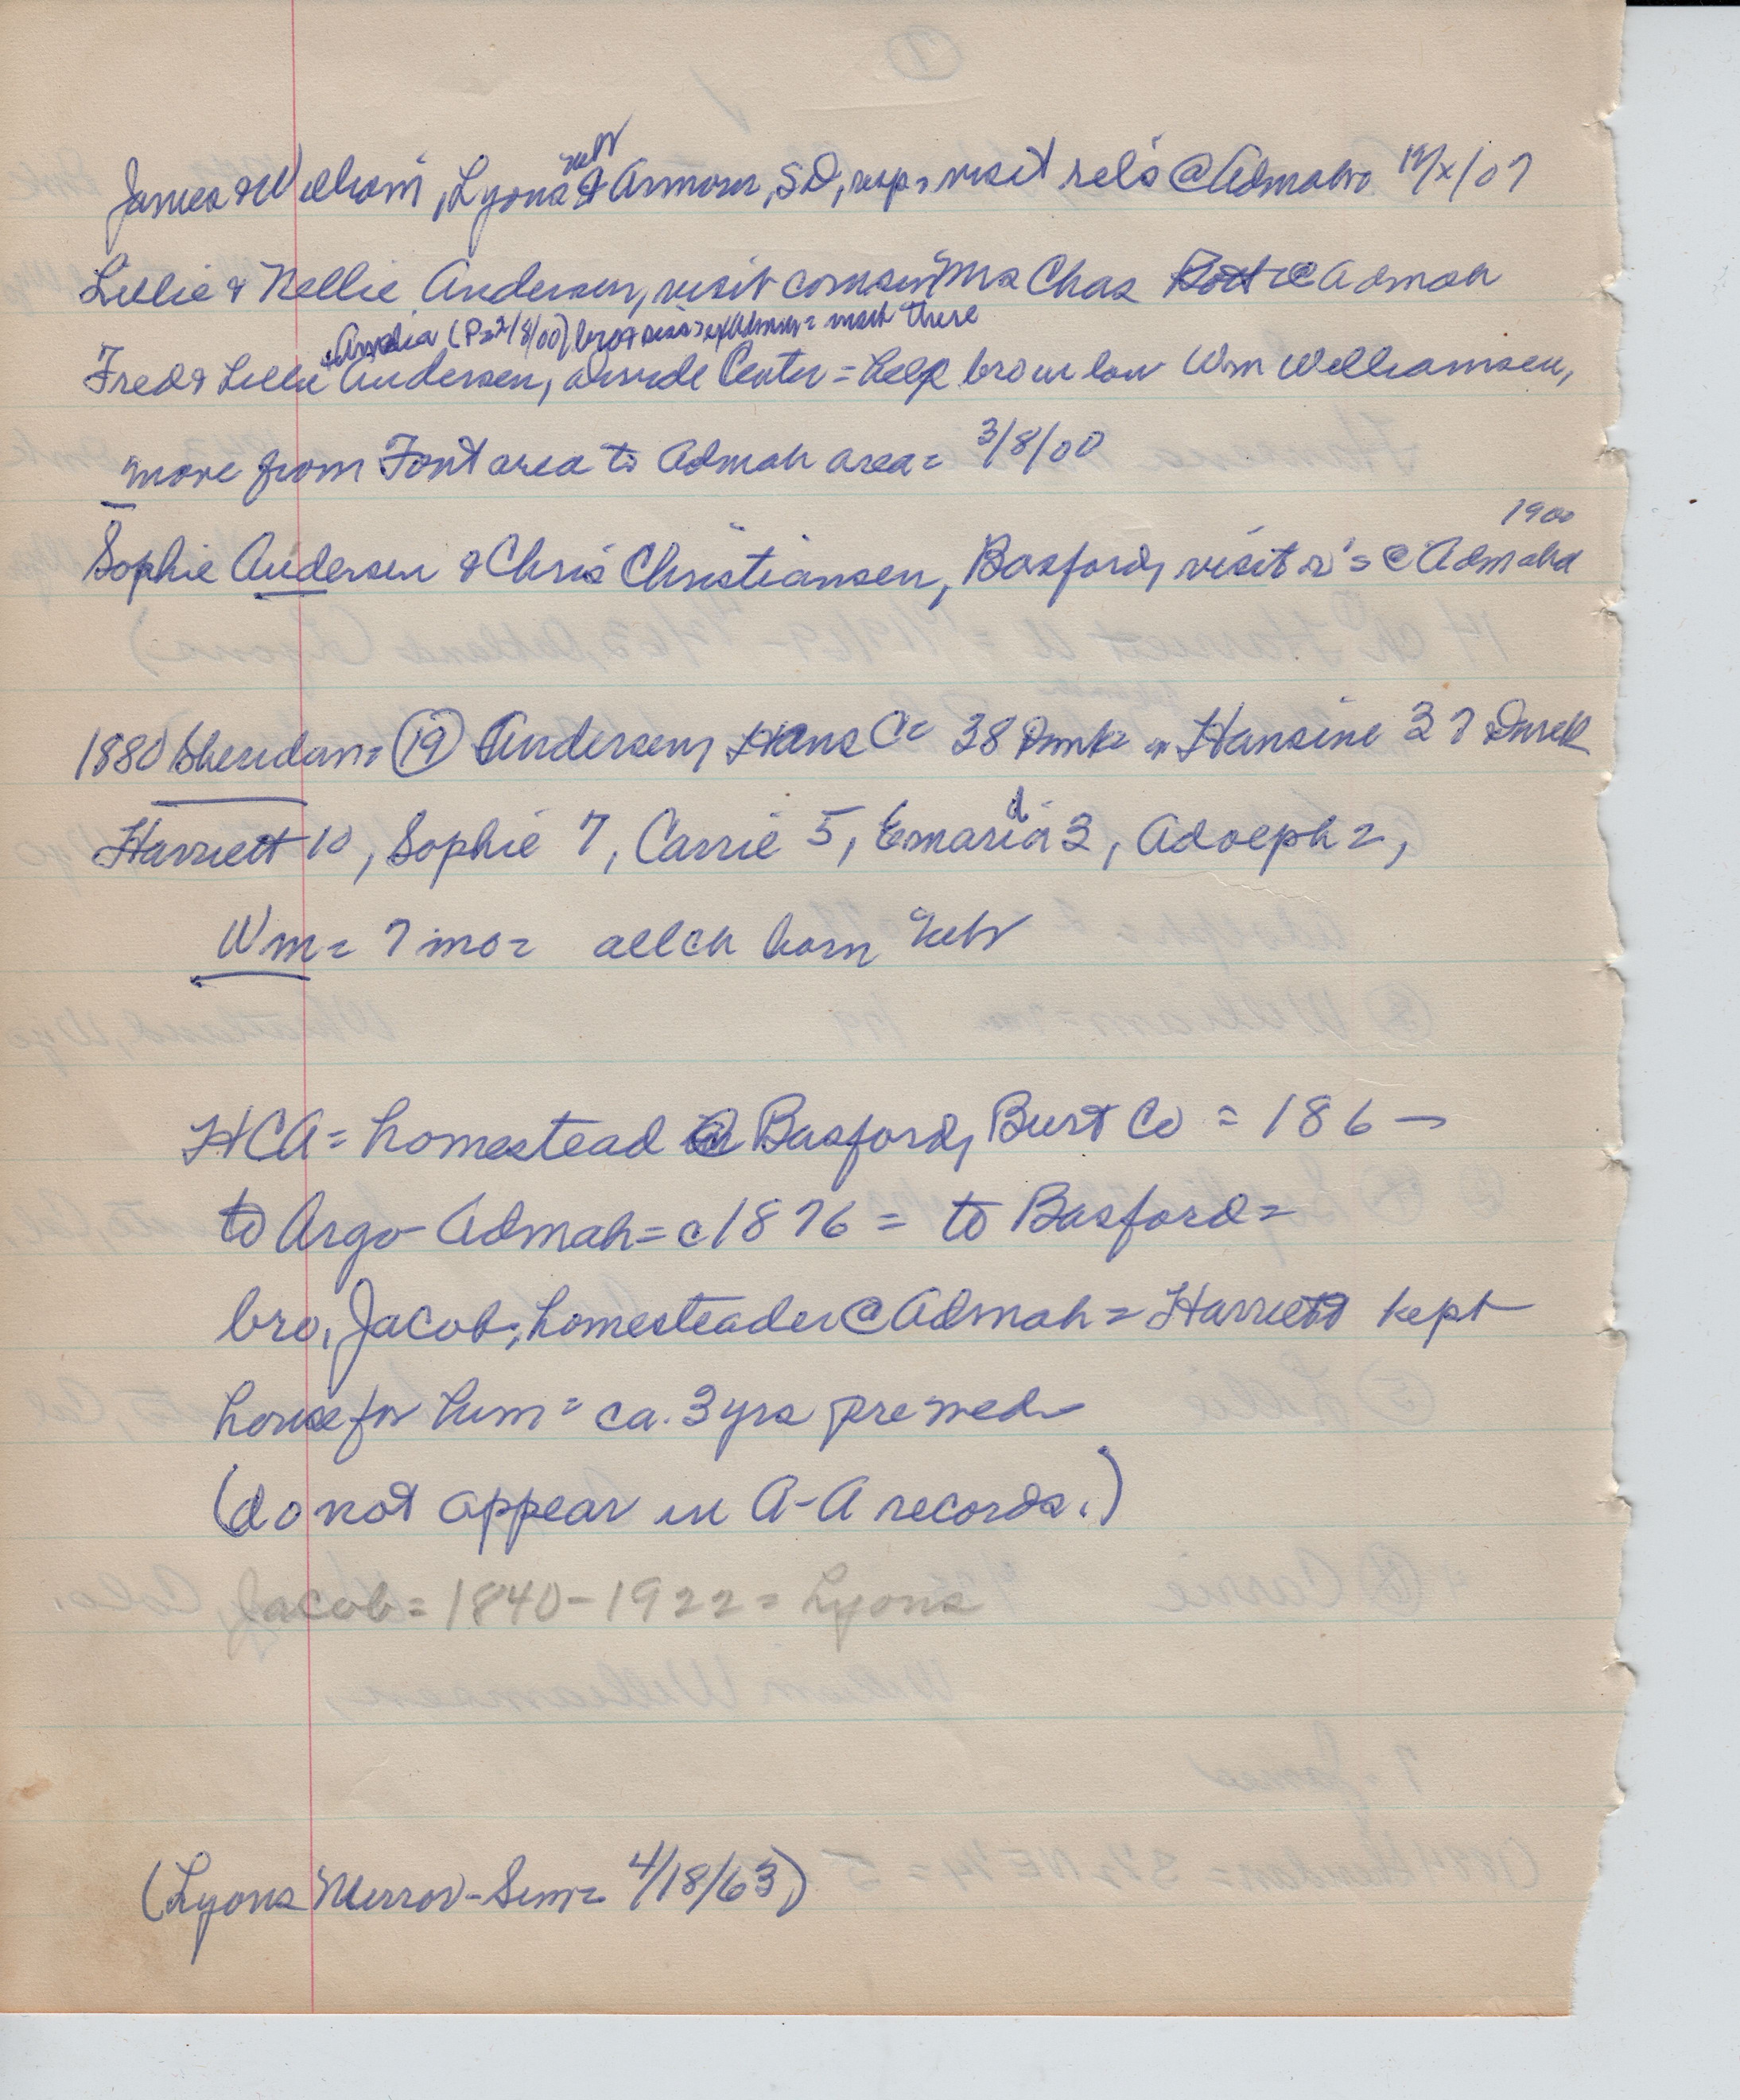 Nebr
James & William, Lyons & Armour, SD, resp= visit rel's @ Admah= /x/07
Lillie & Nellie Andersen, visit cousin Mrs Chas @ Admah
& Amelia (P=2/8/00) bro & sis = = visit there
Fred & Lillie Andersen, divide Center = help bro in law Wm Williamsen,
move from Font area to Admah area= 3/8/00
1900
Sophie Andersen & Chris Christiansen, Basford, visit r's @ Admah
1880 Sheridan= (19) Andersen, Hans C= 38 Dmk= Hansine 37 Dmk
Harriett 10, Sophie 7, Carrie 5, Emaria 3, Adolph 2,
Wm= 7 mo= all ch born Nebr
HCA= homestead @ Basford, Burt Co = 186–
to Argo-Admah= c1876 = to Basford=
bro, Jacob, homesteader @ Admah= Harriett kept
house for him= ca. 3 yrs pre wed
(do not appear in A-A records.)
Jacob= 1840-1922= Lyons
(Lyons Mirror-Sun= 4/18/63)